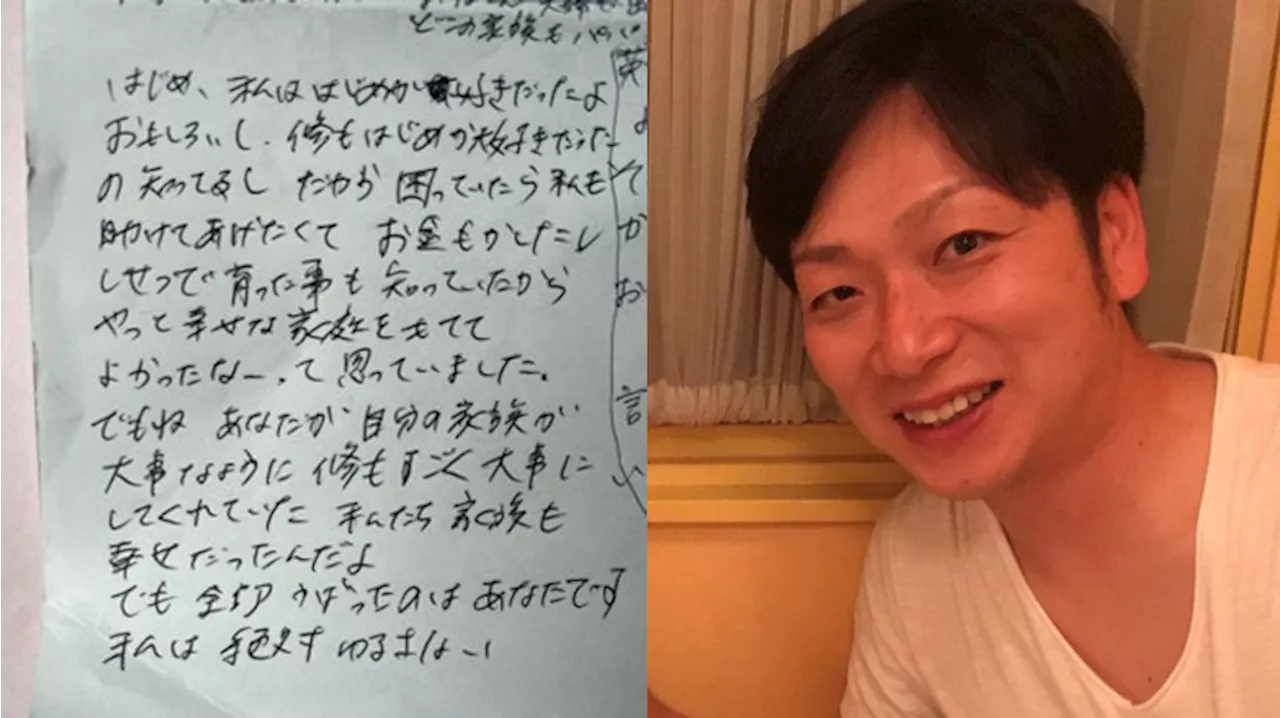 どこの家族もパパ
はじめ、私ははじめが好きだったよ
おもしろいし、修もはじめが大好きだった
の知ってるし だから 困っていたら私も
助けてあげたくて お金もかしたし
しせつで育った事も知っていたから
やっと幸せな家庭をもてて
よかったなー、って思っていました。
でもね あなたが自分の家族が
大事なように 修もすごく大事に
してくれていた 私たち家族も
幸せだったんだよ
でも 全部うばったのは あなたです
私は絶対ゆるさない
英
よ
て
か
お
言